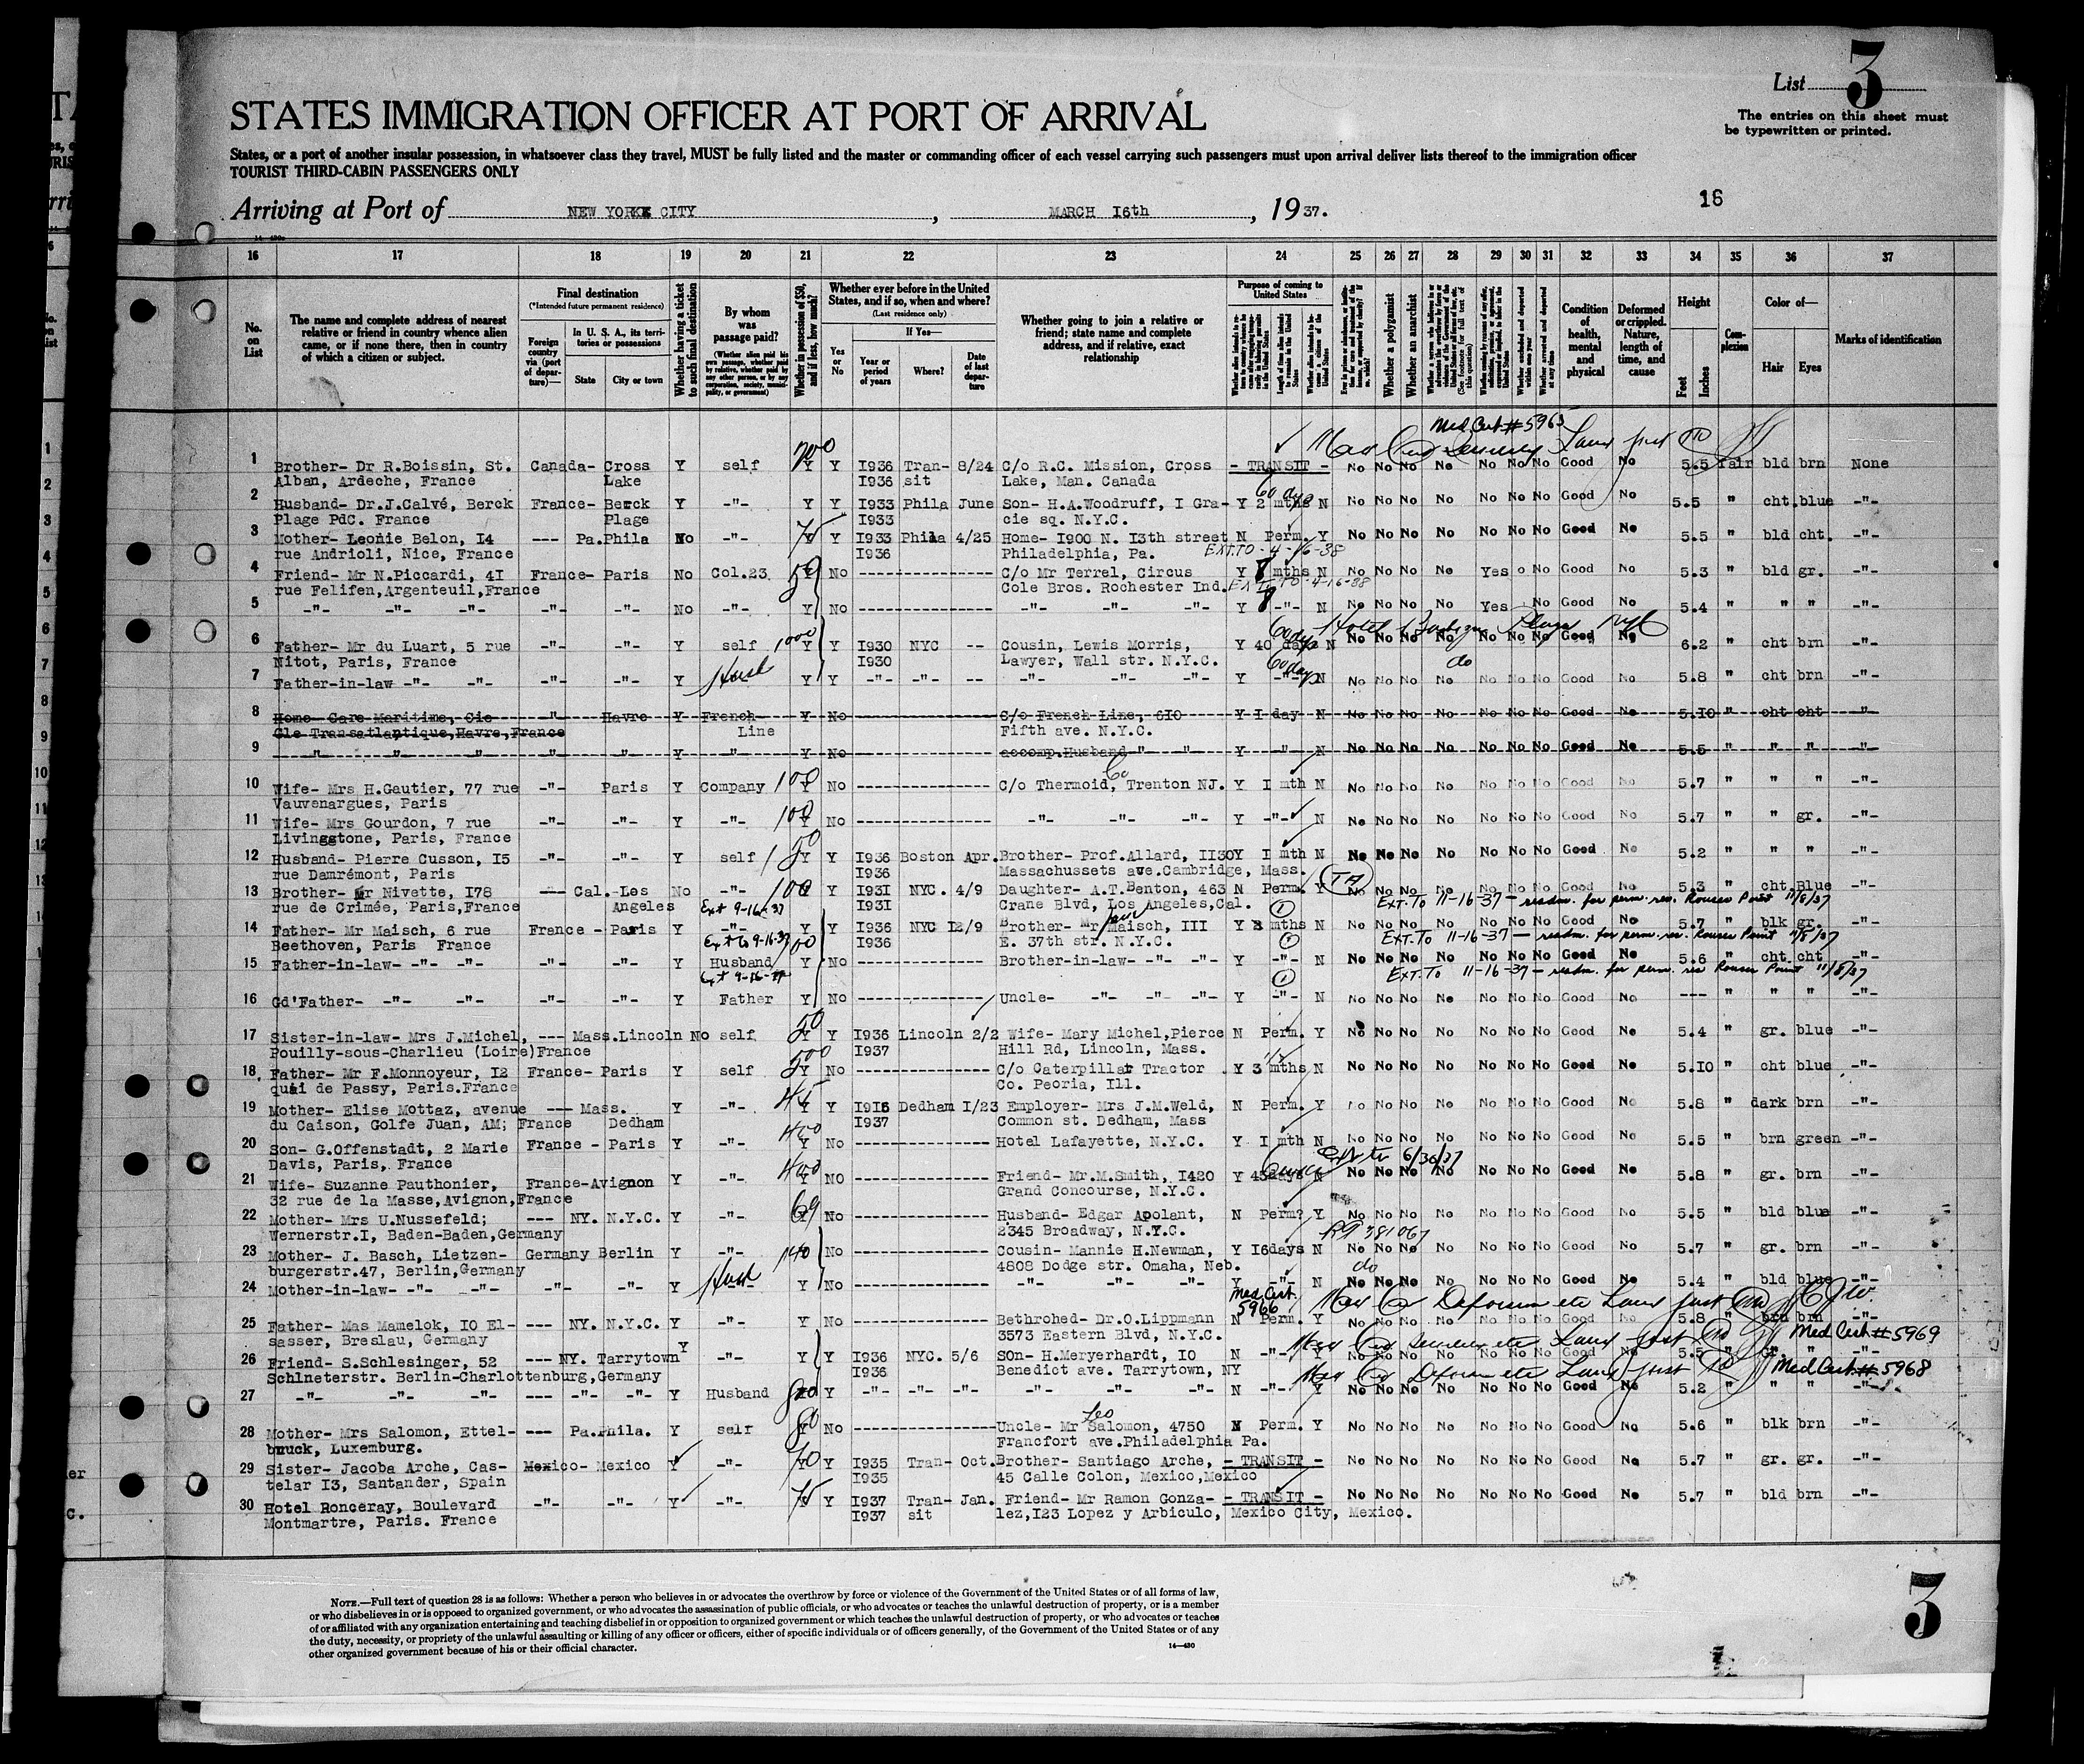 List 3
The entries on this sheet must
be typewritten or printed.
STATES IMMIGRATION OFFICER AT PORT OF ARRIVAL
States, or a port of another insular possession, in whatsoever class they travel, MUST be fully listed and the master or commanding officer of each vessel carrying such passengers must upon arrival deliver lists thereof to the immigration officer
TOURIST THIRD-CABIN PASSENGERS ONLY
Arriving at Port of NEW YORK CITY, MARCH I6th, 19 37.
16
16 17 18 19 20 21 22 23 24 25 26 27 28 29 30 31 32 33 34 35 36 37
No. on List
The name and complete address of nearest relative or friend in country whence alien came, or if none there, then in country of which a citizen or subject.
Final destination
(*Intended future permanent residence)
Foreign country via (port of departure)—
In U. S. A., its territories or possessions
State City or town
Whether having a ticket to such final destination
By whom was passage paid?
Whether in possession of $50, and if less, how much?
Whether ever before in the United States, and if so, when and where?
(Last residence only)
If Yes—
Yes or No
Year or period of years
Where?
Date of last departure
Whether going to join a relative or friend; state name and complete address, and if relative, exact relationship
Purpose of coming to United States
Whether a polygamist
Whether an anarchist
Condition of health, mental and physical
Deformed or crippled. Nature, length of time, and cause
Height
Feet Inches
Complexion
Color of—
Hair Eyes
Marks of identification
Med Cert # 5965
1 Brother- Dr R.Boissin, St. Canada- Cross Y self 700 Y Y I936 Tran- 8/24 C/o R.C. Mission, Cross - TRANSIT - No No No No No No No Good No 5.5 fair bld brn None
Alban, Ardeche, France Lake I936 sit Lake, Man. Canada
60 dys
2 Husband- Dr.J.Calvé, Berck France- Berck Y -"- Y Y I933 Phila June Son- H.A.Woodruff, I Gra- Y 2 mths N No No No No No No No Good No 5.5 " cht blue -"-
Plage PdC. France Plage I933 cie sq. N.Y.C.
3 Mother- Leonie Belon, I4 --- Pa.Phila No -"- 75 Y Y I933 Phila 4/25 Home- I900 N. I3th street N Perm. Y No No No No No No No Good No 5.5 " bld cht. -"-
rue Andrioli, Nice, France I936 Philadelphia, Pa. EXT.TO - 4-16-38
4 Friend- Mr N.Piccardi, 4I France- Paris No Col.23 50 Y No C/o Mr Terrel, Circus Y 8 mths N No No No No Yes o No Good No 5.3 " bld gr. -"-
rue Felifen,Argenteuil,France Cole Bros. Rochester Ind. EXT TO -4-16-38
5 -"- -"- -"- -"- -"- No -"- Y No -"- -"- -"- Y 8 -"- N No No No No Yes No Good No 5.4 " " " -"-
6 Father- Mr du Luart, 5 rue -"- -"- Y self 1000 Y Y I930 NYC -- Cousin, Lewis Morris, Y 40 days N 60 dys No No No No No No No Good No 6.2 cht brn -"-
Nitot, Paris, France I930 Lawyer, Wall str. N.Y.C.
7 Father-in-law -"- -"- -"- -"- Y Husb Y Y -"- -"- -- -"- -"- -"- Y 60 days N do No No No No No No No Good No 5.8 " cht brn -"-
8 Home- Care Maritime, Cie -"- Havre Y French Y No C/o French Line, 6I0 Y I day N No No No No No No No Good No 5.I0 " cht cht -"-
Gle Transatlantique,Havre,France Line Fifth ave. N.Y.C.
9 " " " " " Y " Y No accomp.Husband " " Y " N No No No No No No No Good No 5.5 " " " -"-
10 Wife- Mrs H.Gautier, 77 rue -"- Paris Y Company 100 Y No C/o Thermoid, Co Trenton NJ. Y I mth N No No No No No No No Good No 5.7 " " " -"-
Vauvenargues, Paris
11 Wife- Mrs Gourdon, 7 rue -"- -"- Y -"- 100 Y No -"- -"- -"- Y -"- N No No No No No No No Good No 5.7 " " gr. -"-
Livingstone, Paris, France
12 Husband- Pierre Cusson, I5 -"- -"- Y self 150 Y Y I936 Boston Apr. Brother- Prof.Allard, II30 Y I mth N No No No No No No No Good No 5.2 " " " -"-
rue Damrémont, Paris I936 Massachussets ave.Cambridge, Mass.
13 Brother- Mr Nivette, I78 --- Cal. Los No -"- 100 Y I93I NYC. 4/9 Daughter- A.T.Benton, 463 N Perm. Y TA No No No No No No No Good No 5.3 " cht Blue -"-
rue de Crimée, Paris,France Angeles I93I Crane Blvd, Los Angeles,Cal.
Ext 9-16-37 EXT.TO 11-16-37 — readm. for perm. res. Rouses Point 11/8/37
14 Father- Mr Maisch, 6 rue France - Paris Y -"- Y Y I936 NYC I2/9 Brother- Mr Maisch, III Y 3 mths N No No No No No No No Good No 5.7 " blk gr. -"-
Beethoven, Paris France I936 E. 37th str. N.Y.C.
Ext to 9-16-37 EXT.TO 11-16-37 — readm. for perm. res. Rouses Point 11/8/37
15 Father-in-law- -"- -"- -"- -"- Y Husband Y No Brother-in-law- -"- -"- Y -"- N No No No No No No No Good No 5.6 " cht cht -"-
Ext 9-16-37 EXT.TO 11-16-37 — readm. for perm. res Rouses Point 11/8/37
16 Gd'Father- -"- -"- -"- -"- Y Father Y No Uncle- -"- -"- -"- Y -"- N No No No No No No No Good No --- " " " -"-
17 Sister-in-law- Mrs J.Michel, --- Mass.Lincoln No self 50 Y Y I936 Lincoln 2/2 Wife- Mary Michel,Pierce N Perm. Y No No No No No No No Good No 5.4 " gr. blue -"-
Pouilly-sous-Charlieu (Loire)France I937 Hill Rd, Lincoln, Mass.
18 Father- Mr F.Monnoyeur, I2 France- Paris Y self 500 Y No C/o Caterpillar Tractor Y 3 mths N No No No No No No No Good No 5.I0 " cht blue -"-
quai de Passy, Paris.France Co. Peoria, Ill.
19 Mother- Elise Mottaz, avenue --- Mass. Y -"- 45 Y Y I916 Dedham I/23 Employer- Mrs J.M.Weld, N Perm. Y No No No No No No No Good No 5.8 " dark brn -"-
du Caison, Golfe Juan, AM; France Dedham I937 Common st. Dedham, Mass
20 Son- G.Offenstadt, 2 Marie France - Paris Y -"- 400 Y No Hotel Lafayette, N.Y.C. Y I mth N No No No No No No No Good No 5.5 " brn green -"-
Davis, Paris, France Ext to 6/30/37
21 Wife- Suzanne Pauthonier, France-Avignon Y -"- 400 Y NO Friend- Mr.M.Smith, I420 Y 45days N No No No No No No No Good No 5.8 " gr. brn -"-
32 rue de la Masse,Avignon,France Grand Concourse, N.Y.C.
22 Mother- Mrs U.Nussefeld; --- NY. N.Y.C. Y -"- 69 Y No Husband- Edgar Apolant, N Perm? Y No No No No No No No Good No 5.5 " bld blue -"-
Wernerstr.I, Baden-Baden,Germany 2345 Broadway, N.Y.C.
23 Mother- J. Basch, Lietzen- Germany Berlin Y -"- 140 No Cousin- Mannie H.Newman, Y I6days N No No No No No No No Good No 5.7 " gr. brn -"-
burgerstr.47, Berlin,Germany 4808 Dodge str. Omaha, Neb.
do
24 Mother-in-law- -"- -"- -"- -"- Y Husb Y No -"- -"- -"- Y -"- N No No No No No No No Good No 5.4 " bld blue -"-
Med Cert. 5966
25 Father- Mas Mamelok, I0 El- --- NY. N.Y.C. Y -"- Y No Bethrohed- Dr.O.Lippmann N Perm. Y No No No No No No No Good No 5.8 " brn brn
sasser, Breslau, Germany 3573 Eastern Blvd, N.Y.C. Med Cert # 5969
26 Friend- S.Schlesinger, 52 --- NY. Tarrytown Y -"- Y Y I936 NYC. 5/6 SOn- H.Meryerhardt, I0 N -"- Y No No No No No No No Good No 5.5 " gr. " -"-
Schlneterstr. Berlin-Charlottenburg,Germany I936 Benedict ave. Tarrytown, NY Med Cert. # 5968
27 -"- -"- -"- --- -"- -"- Y Husband 800 Y -"- -"- -"- -"- -"- -"- N -"- Y No No No No No No No Good No 5.2 " " " -"-
28 Mother- Mrs Salomon, Ettel- --- Pa.Phila. Y self 80 Y No Uncle- Mr Leo Salomon, 4750 N Perm. Y No No No No No No No Good No 5.6 " blk brn -"-
bruck, Luxemburg. Francfort ave.Philadelphia Pa.
29 Sister- Jacoba Arche, Cas- Mexico- Mexico Y -"- 70 Y Y I935 Tran- Oct. Brother- Santiago Arche, - TRANSIT - No No No No No No No Good No 5.7 " gr. gr. -"-
telar I3, Santander, Spain I935 45 Calle Colon, Mexico,Mexico
30 Hotel Ronceray, Boulevard -"- -"- Y -"- 75 Y Y I937 Tran- Jan. Friend- Mr Ramon Gonza- - TRANSIT - No No No No No No No Good No 5.7 " bld brn -"-
Montmartre, Paris. France I937 sit lez,I23 Lopez y Arbiculo, Mexico City, Mexico.
NOTE.—Full text of question 28 is as follows: Whether a person who believes in or advocates the overthrow by force or violence of the Government of the United States or of all forms of law,
or who disbelieves in or is opposed to organized government, or who advocates the assassination of public officials, or who advocates or teaches the unlawful destruction of property, or is a member
of or affiliated with any organization entertaining and teaching disbelief in or opposition to organized government or which teaches the unlawful destruction of property, or who advocates or teaches
the duty, necessity, or propriety of the unlawful assaulting or killing of any officer or officers, either of specific individuals or of officers generally, of the Government of the United States or of any
other organized government because of his or their official character. 14—430
3